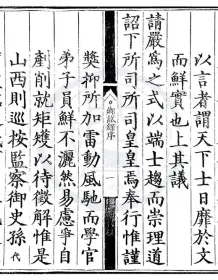 以言者謂天下士日靡於文
而鮮實也上其議
請嚴為之式以端士趨而崇理道
詔下所司所司皇皇焉奉行惟謹
奬抑所加雷動風馳而學官
弟子員鮮不灑然易慮爭自
剷削就矩矱以待徵解惟是
山西則巡按監察御史孫代